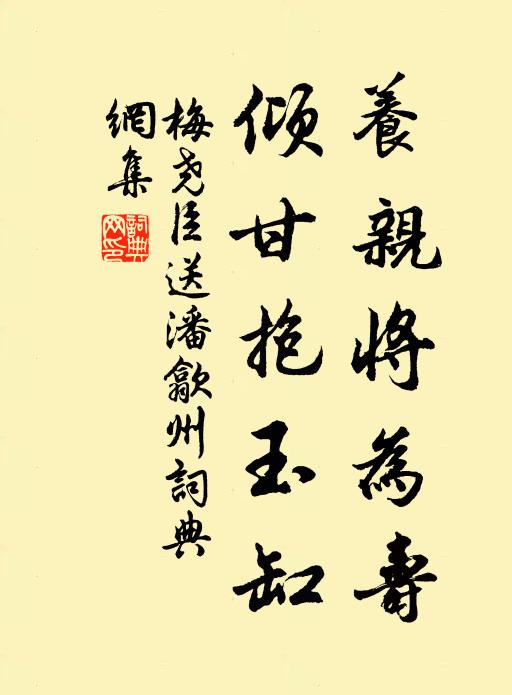 養親將為壽
傾甘抱玉缸
梅尧臣送潘歙州詞典
網集
詞典网印